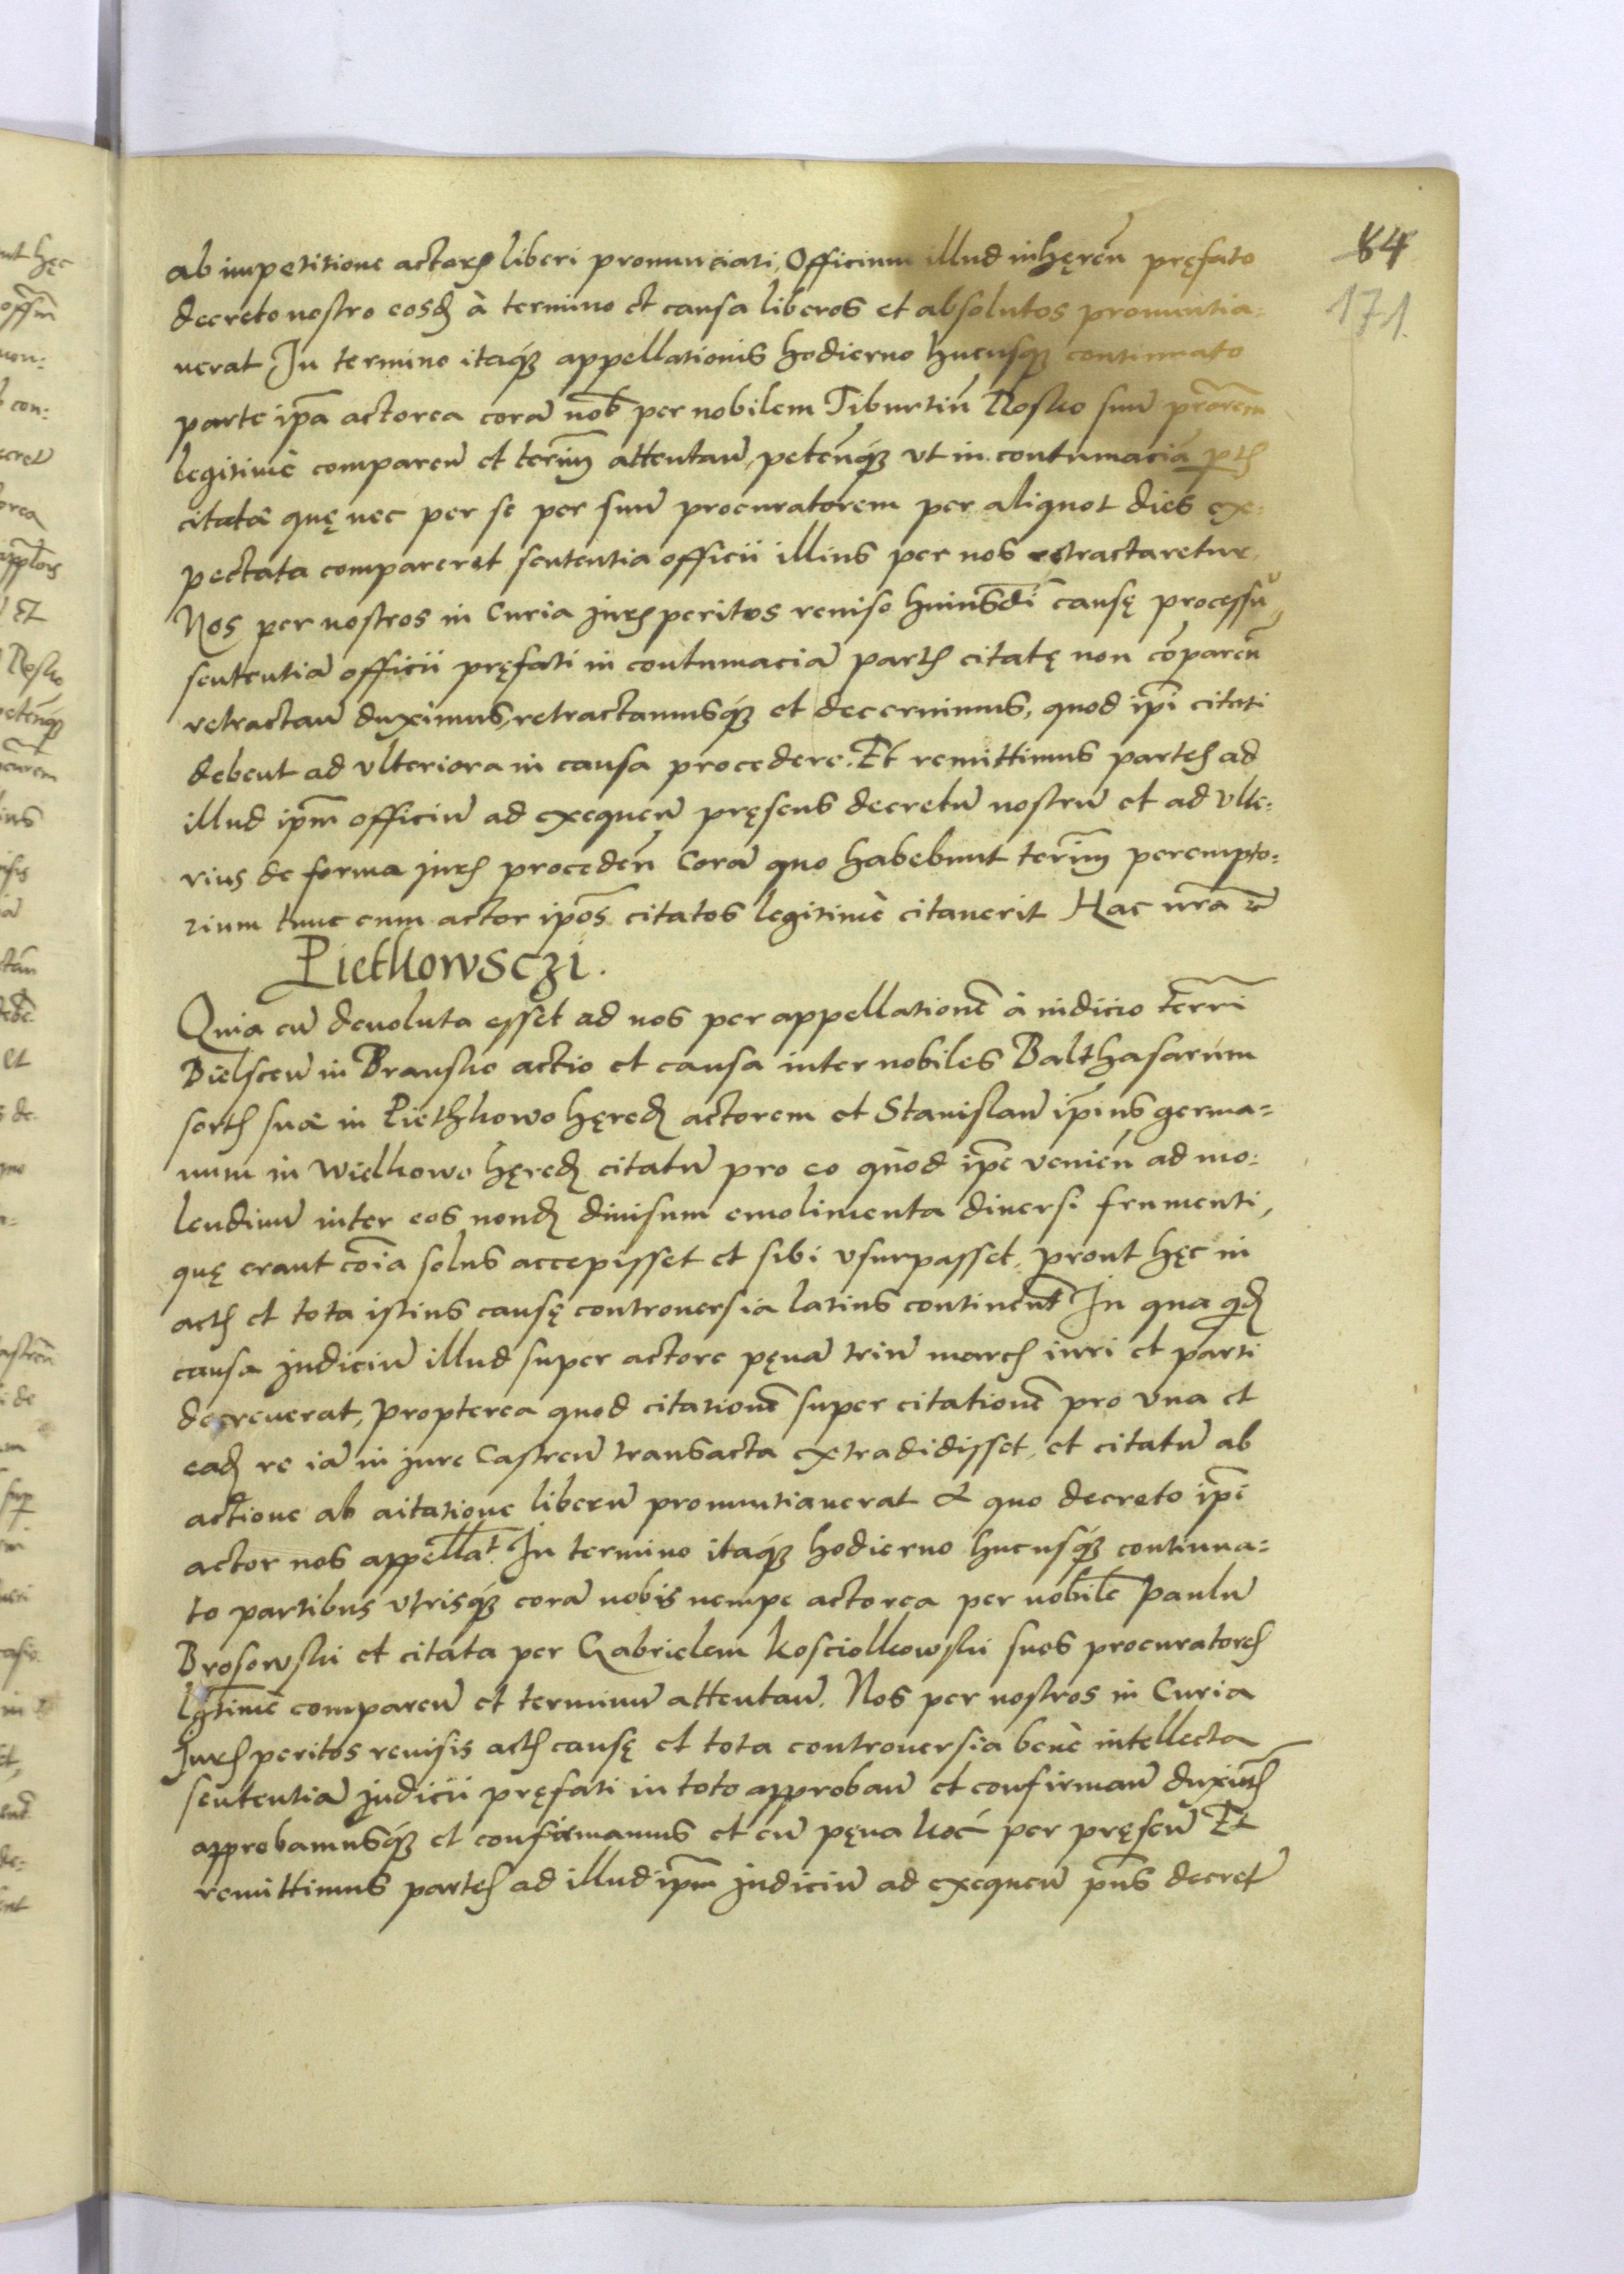 84
171.
ab impetitione actorꝭ liberi pronunciati, Officium illud inhęreñ pręfato
decreto nostro eosđ à termino et causa liberos et absolutos pronuntia=
uerat In termino itaqꝫ appellationis hodierno hucusqꝫ continuato
parte ip̃a actorea corã nob̃ per nobilem Tiburtiũ Rosko suũ prõrem
legitimè compareñ et ter̃im attentañ, peteñqꝫ vt in contumaciã p̃tꝭ
citatæ quę nec per se per suũ procuratorem per aliquot dies ex=
pectata compareret sententia officii illius per nos retractaretur.
Nos per nostros in Curia jurꝭ peritos reuiso huiusdi causę processũ,
sententiã officii pręfati in contumaciã partꝭ citatę non cõpareñ
retractañ duximus, retractamusqꝫ et decernimus, quod ip̃i citati
debent ad vlteriora in causa procedere. Et remittimus partꝭ ad
illud ip̃m officiũ ad exequeñ pręsens decretũ nostrũ et ad vlte=
rius de forma jurꝭ procedeñ Corã quo habebunt ter̃im perempto=
rium tunc cum actor ip̃os citatos legitimè citauerit Hac nr̃a &c
Piethowsczi.
Quia cũ deuoluta esset ad nos per appellationẽ à iudicio terr̃i
Bielsceñ in Bransko actio et causa inter nobiles Balthasarum
sortꝭ suæ in Piethkowo hęređ actorem et Stanislaũ ip̃ius germa=
num in Wielkowo hęređ citatũ pro eo quòd ip̃e venieñ ad mo=
lendinũ inter eos nonđ diuisum emolimenta diuersi frumenti,
quę erant cõia solus accepisset et sibi vsurpasset, prout hęc in
actꝭ et tota istius causę controuersia latius continent̃ In qua quiđ
causa judiciũ illud super actore pęnã triũ marcꝭ iuri et parti
decreuerat, propterea quod citationẽ super citationẽ pro vna et
eađ re iã in jure Castreñ transacta extradidisset, et citatũ ab
actione ab aitatione liberũ pronuntiauerat A quo decreto ip̃e
actor nos appellat̃. In termino itaqꝫ hodierno hucusqꝫ continua=
to partibus vtrisqꝫ corã nobis nempe actorea per nobilẽ Paulũ
Brosowski et citata per Gabrielem Kosciolkowski suos procuratorꝭ
lgr̃timẽ compareñ et terminũ attentañ. Nos per nostros in Curia
Jurꝭ peritos reuisis actꝭ causę et tota controuersia benè intellecta
sententiã judicii pręfati in toto approbañ et confirmañ duximꝰ
approbamusqꝫ et confirmamus et cũ pęna hoć per pręseñ Et
remittimus partꝭ ad illud ip̃m judiciũ ad exequeñ p̃ns decretũ